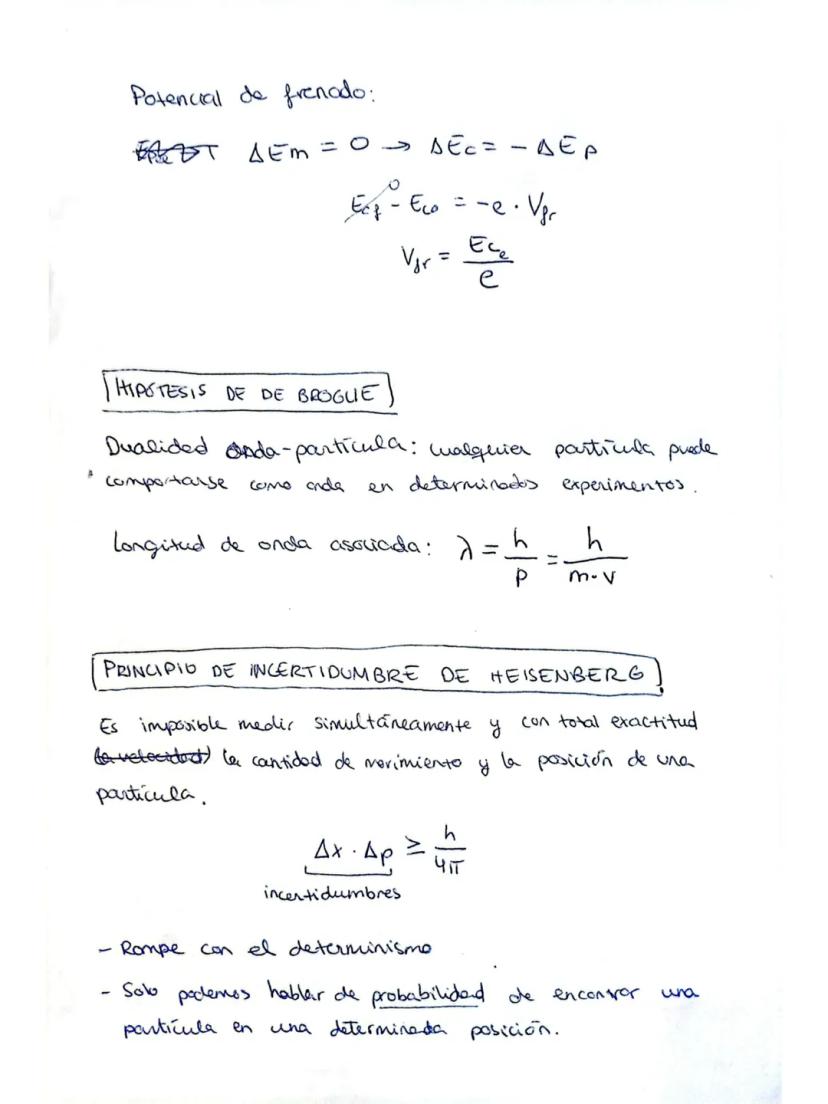 Potencial de frenado:
ΔEm = 0 → ΔEc = - ΔEp
Ecf⁰ - Eco = -e · Vfr
Vfr = Ece / e
HIPÓTESIS DE DE BROGLIE
Dualidad onda-partícula: cualquier partícula puede
comportarse como onda en determinados experimentos.
Longitud de onda asociada: λ = h / p = h / m·v
PRINCIPIO DE INCERTIDUMBRE DE HEISENBERG
Es imposible medir simultáneamente y con total exactitud
(la velocidad) la cantidad de movimiento y la posición de una
partícula.
Δx · Δp ≥ h / 4π
incertidumbres
- Rompe con el determinismo
- Solo podemos hablar de probabilidad de encontrar una
partícula en una determinada posición.